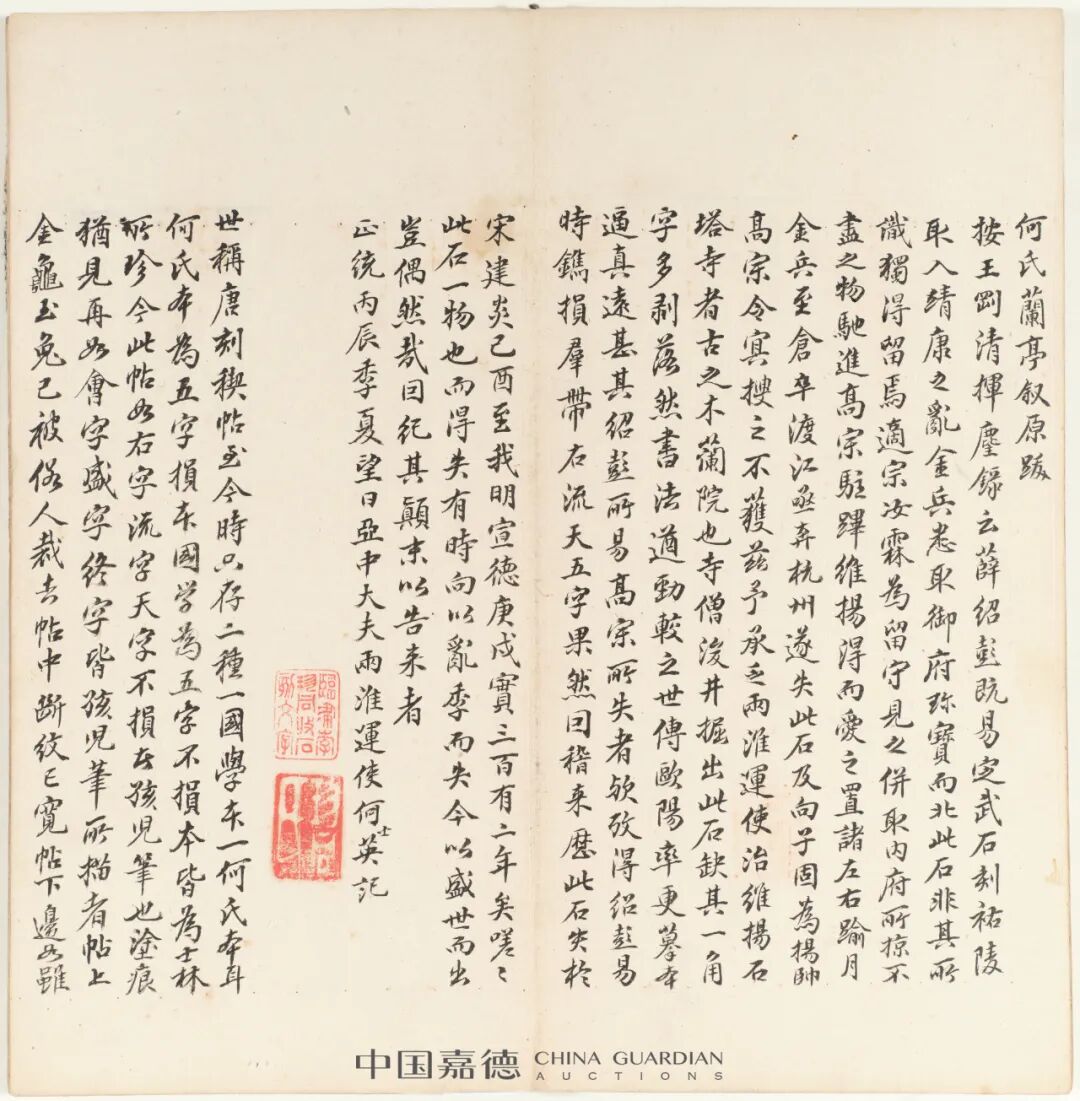 何氏蘭亭叙原跋
按王剛清揮麈錄云薛紹彭既易定武石刻祐陵
取入靖康之亂金兵悉取御府珎寶而北此石非其所
識獨得留焉適宗汝霖為留守見之併取內府所掠不
盡之物馳進高宗駐蹕維揚得而愛之置諸左右踰月
金兵至倉卒渡江亟弃杭州遂失此石及向子固為揚帥
高宗令冥搜之不獲茲予承乏兩淮運使治維揚石
塔寺者古之木蘭院也寺僧浚井掘出此石缺其一角
字多剥落然書法遒勁較之世傳歐陽率更摹本
逼真遠甚其紹彭所易高宗所失者欤攷得紹彭易
時鐫損羣帶右流天五字果然因稽来歷此石失於
宋建炎己酉至我明宣德庚戌實三百有二年矣嗟〻
此石一物也而得失有時向以亂季而失今以盛世而出
豈偶然哉因紀其顛末以告来者
正統丙辰季夏望日亞中大夫兩淮運使何士英記
世稱唐刻稧帖至今時只存二種一國學本一何氏本耳
何氏本為五字損本國学為五字不損本皆為士林
所珍今此帖如右字流字天字不損去孩兒筆也塗痕
猶見再如會字盛字終字皆孩児筆所描者帖上
金龜玉兔已被俗人裁去帖中断紋已寬帖下邊如雖
中国嘉德 CHINA GUARDIAN
AUCTIONS